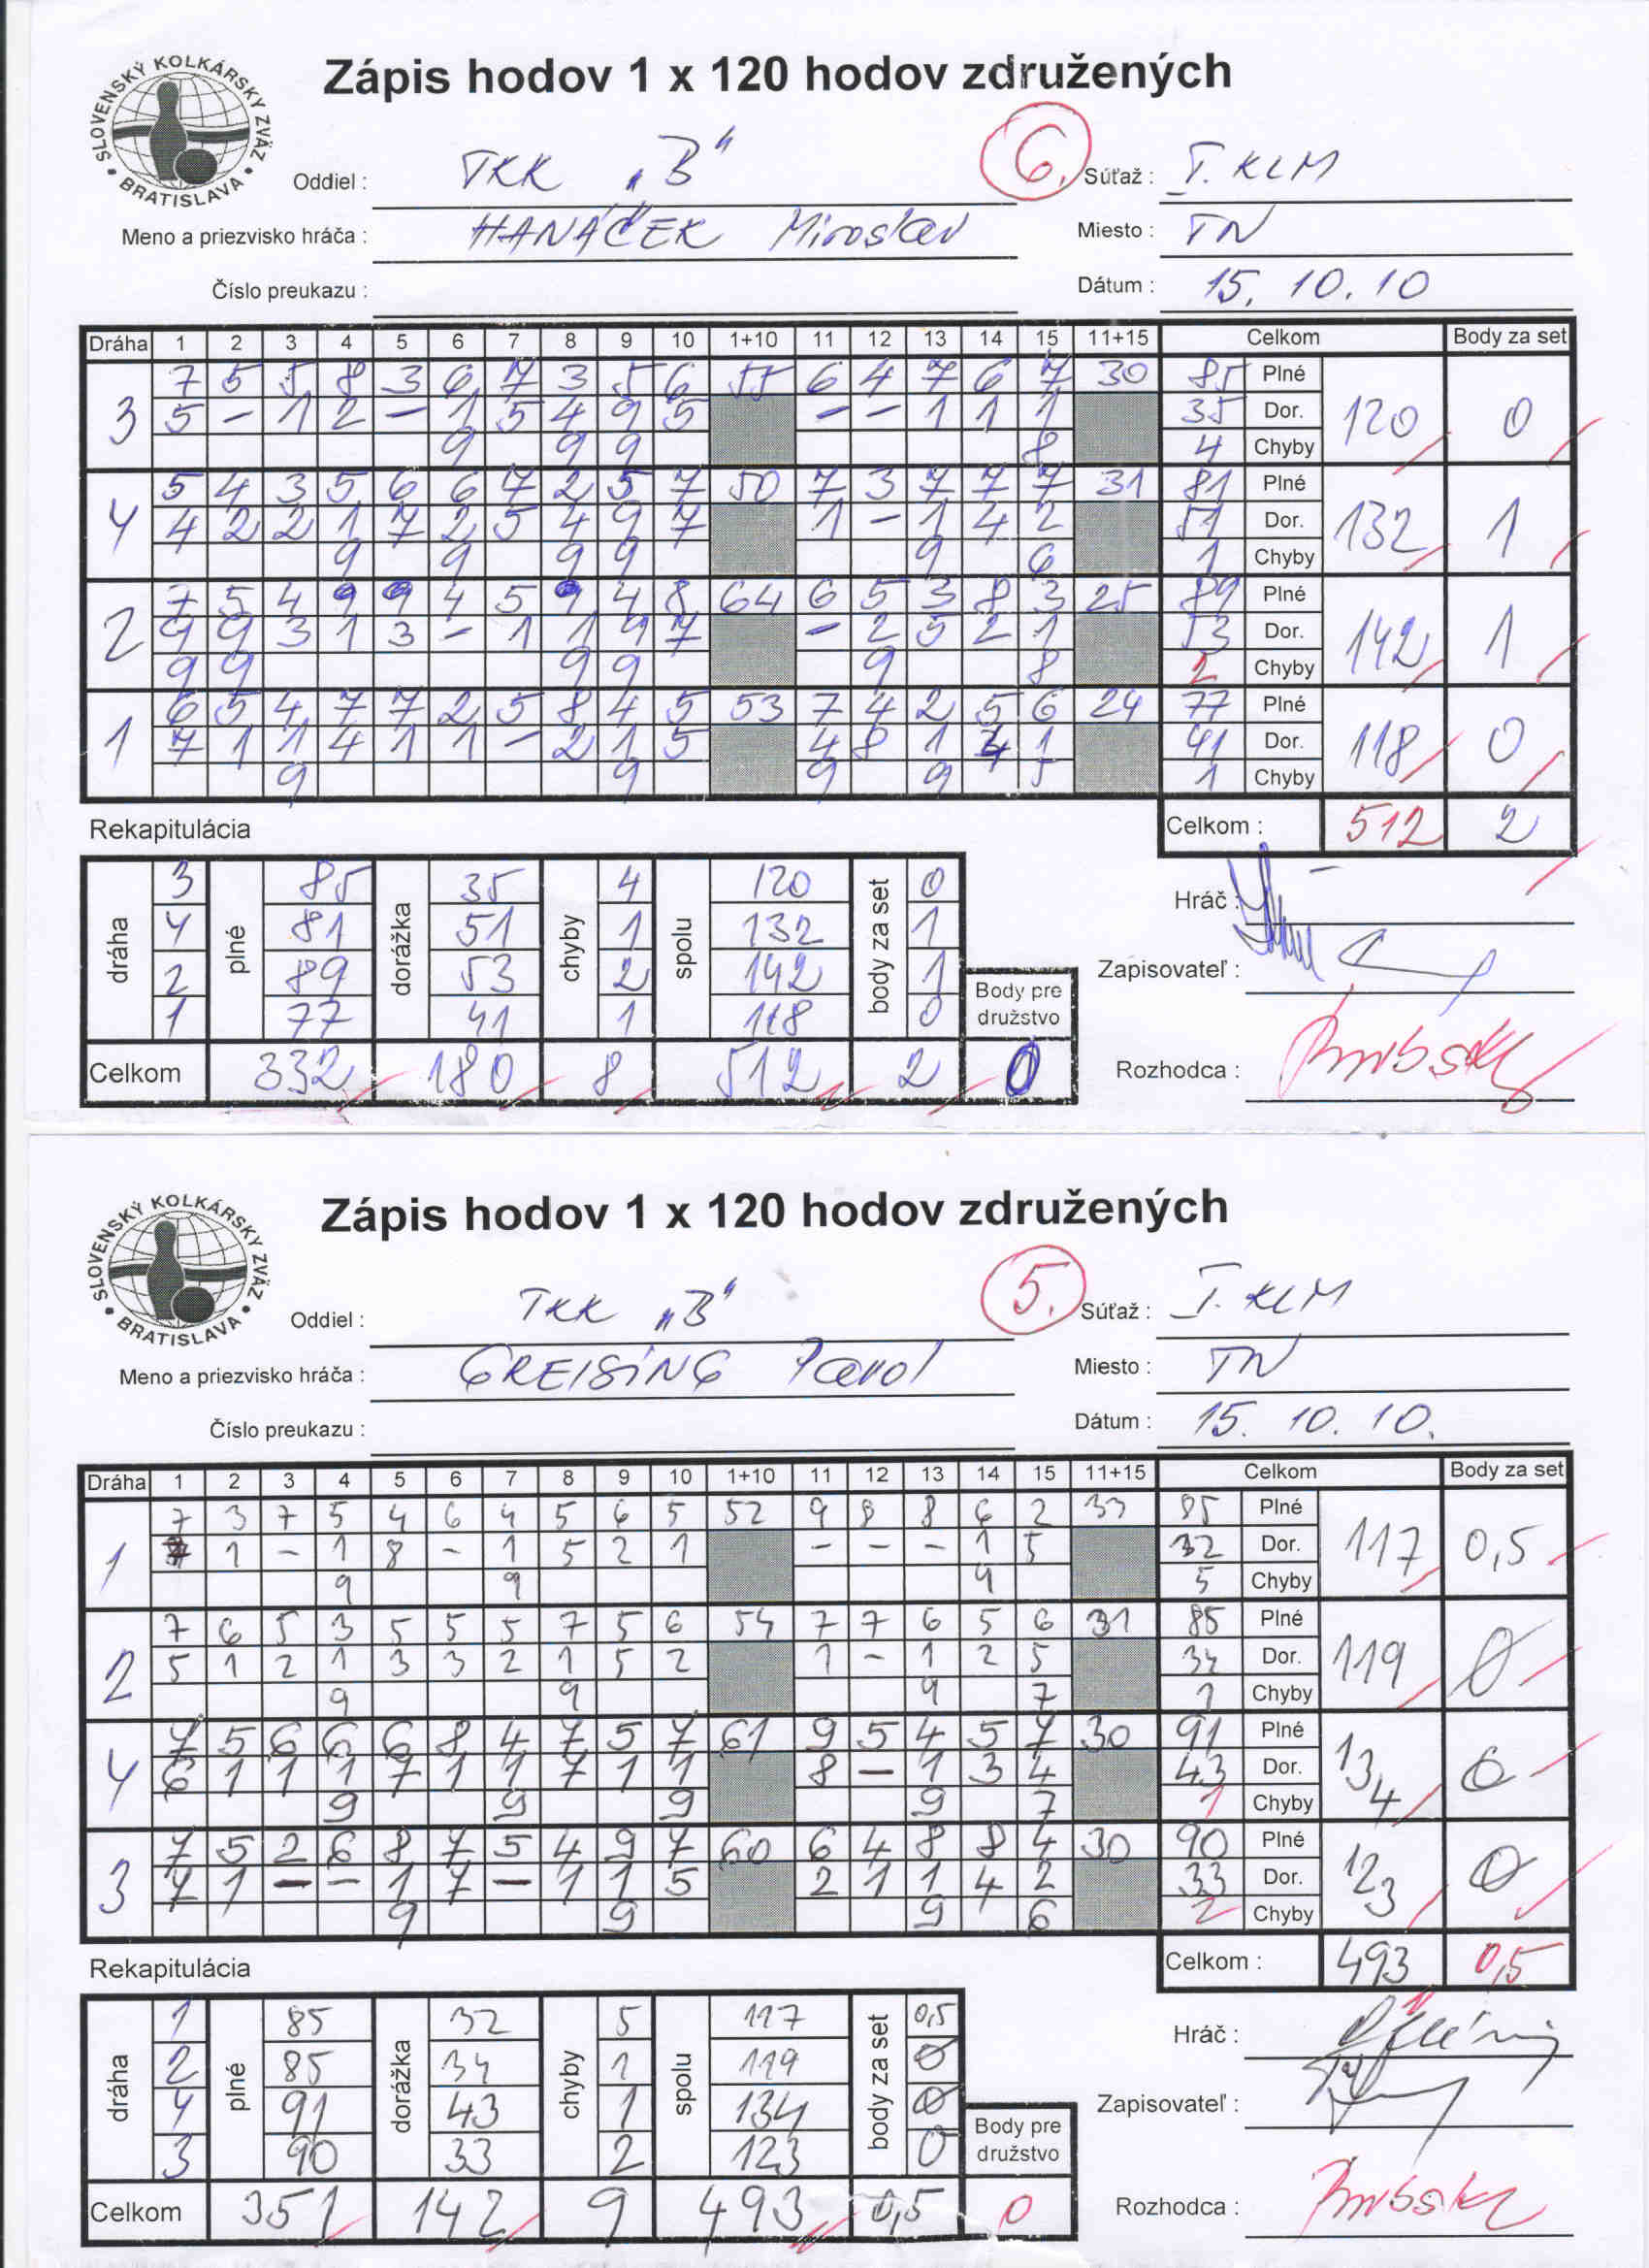 Zápis hodov 1 x 120 hodov združených
SLOVENSKÝ KOLKÁRSKY ZVÄZ • BRATISLAVA •
Oddiel : TKK „B“ 6. Súťaž : I. KLM
Meno a priezvisko hráča : HANÁČEK Miroslav Miesto : TN
Číslo preukazu : Dátum : 15. 10. 10
Dráha 1 2 3 4 5 6 7 8 9 10 1+10 11 12 13 14 15 11+15 Celkom Body za set
7 5 5 8 3 6 7 3 5 6 55 6 4 7 6 7 30 85 Plné
3 5 - 1 2 - 1 5 4 9 5 - - 1 1 1 35 Dor. 120 0
9 9 9 8 4 Chyby
5 4 3 5 6 6 7 2 5 7 50 7 3 7 7 7 31 81 Plné
4 4 2 2 1 7 2 5 4 9 7 1 - 1 4 2 51 Dor. 132 1
9 9 9 9 9 6 1 Chyby
7 5 4 9 9 4 5 9 4 8 64 6 5 3 8 3 25 89 Plné
2 9 9 3 1 3 - 1 1 9 7 - 2 5 2 1 53 Dor. 142 1
9 9 9 9 9 8 2 Chyby
6 5 4 7 7 2 5 8 4 5 53 7 4 2 5 6 24 77 Plné
1 7 1 1 4 1 1 - 2 1 5 4 8 1 4 1 41 Dor. 118 0
9 9 9 9 5 1 Chyby
Rekapitulácia Celkom : 512 2
dráha plné dorážka chyby spolu body za set
3 85 35 4 120 0
4 81 51 1 132 1
2 89 53 2 142 1
1 77 41 1 118 0
Body pre družstvo
Celkom 332 180 8 512 2 0
Hráč :
Zapisovateľ :
Rozhodca :
Zápis hodov 1 x 120 hodov združených
SLOVENSKÝ KOLKÁRSKY ZVÄZ • BRATISLAVA •
Oddiel : TKK „B“ 5. Súťaž : I. KLM
Meno a priezvisko hráča : GREISING Pavol Miesto : TN
Číslo preukazu : Dátum : 15. 10. 10.
Dráha 1 2 3 4 5 6 7 8 9 10 1+10 11 12 13 14 15 11+15 Celkom Body za set
7 3 7 5 4 6 4 5 6 5 52 9 8 8 6 2 33 85 Plné
1 1 - 1 8 - 1 5 2 1 - - - 1 5 32 Dor. 117 0,5
9 9 9 5 Chyby
7 6 5 3 5 5 5 7 5 6 54 7 7 6 5 6 31 85 Plné
2 5 1 2 1 3 3 2 1 5 2 1 - 1 2 5 34 Dor. 119 0
9 9 9 7 1 Chyby
7 5 6 6 6 8 4 7 5 7 61 9 5 4 5 7 30 91 Plné
4 6 1 1 1 7 1 1 7 1 1 8 - 1 3 4 43 Dor. 134 0
9 9 9 9 7 1 Chyby
7 5 2 6 8 7 5 4 9 7 60 6 4 8 8 4 30 90 Plné
3 7 1 - - 1 7 - 1 1 5 2 1 1 4 2 33 Dor. 123 0
9 9 9 6 2 Chyby
Rekapitulácia Celkom : 493 0,5
dráha plné dorážka chyby spolu body za set
1 85 32 5 117 0,5
2 85 34 1 119 0
4 91 43 1 134 0
3 90 33 2 123 0
Body pre družstvo
Celkom 351 142 9 493 0,5 0
Hráč :
Zapisovateľ :
Rozhodca :